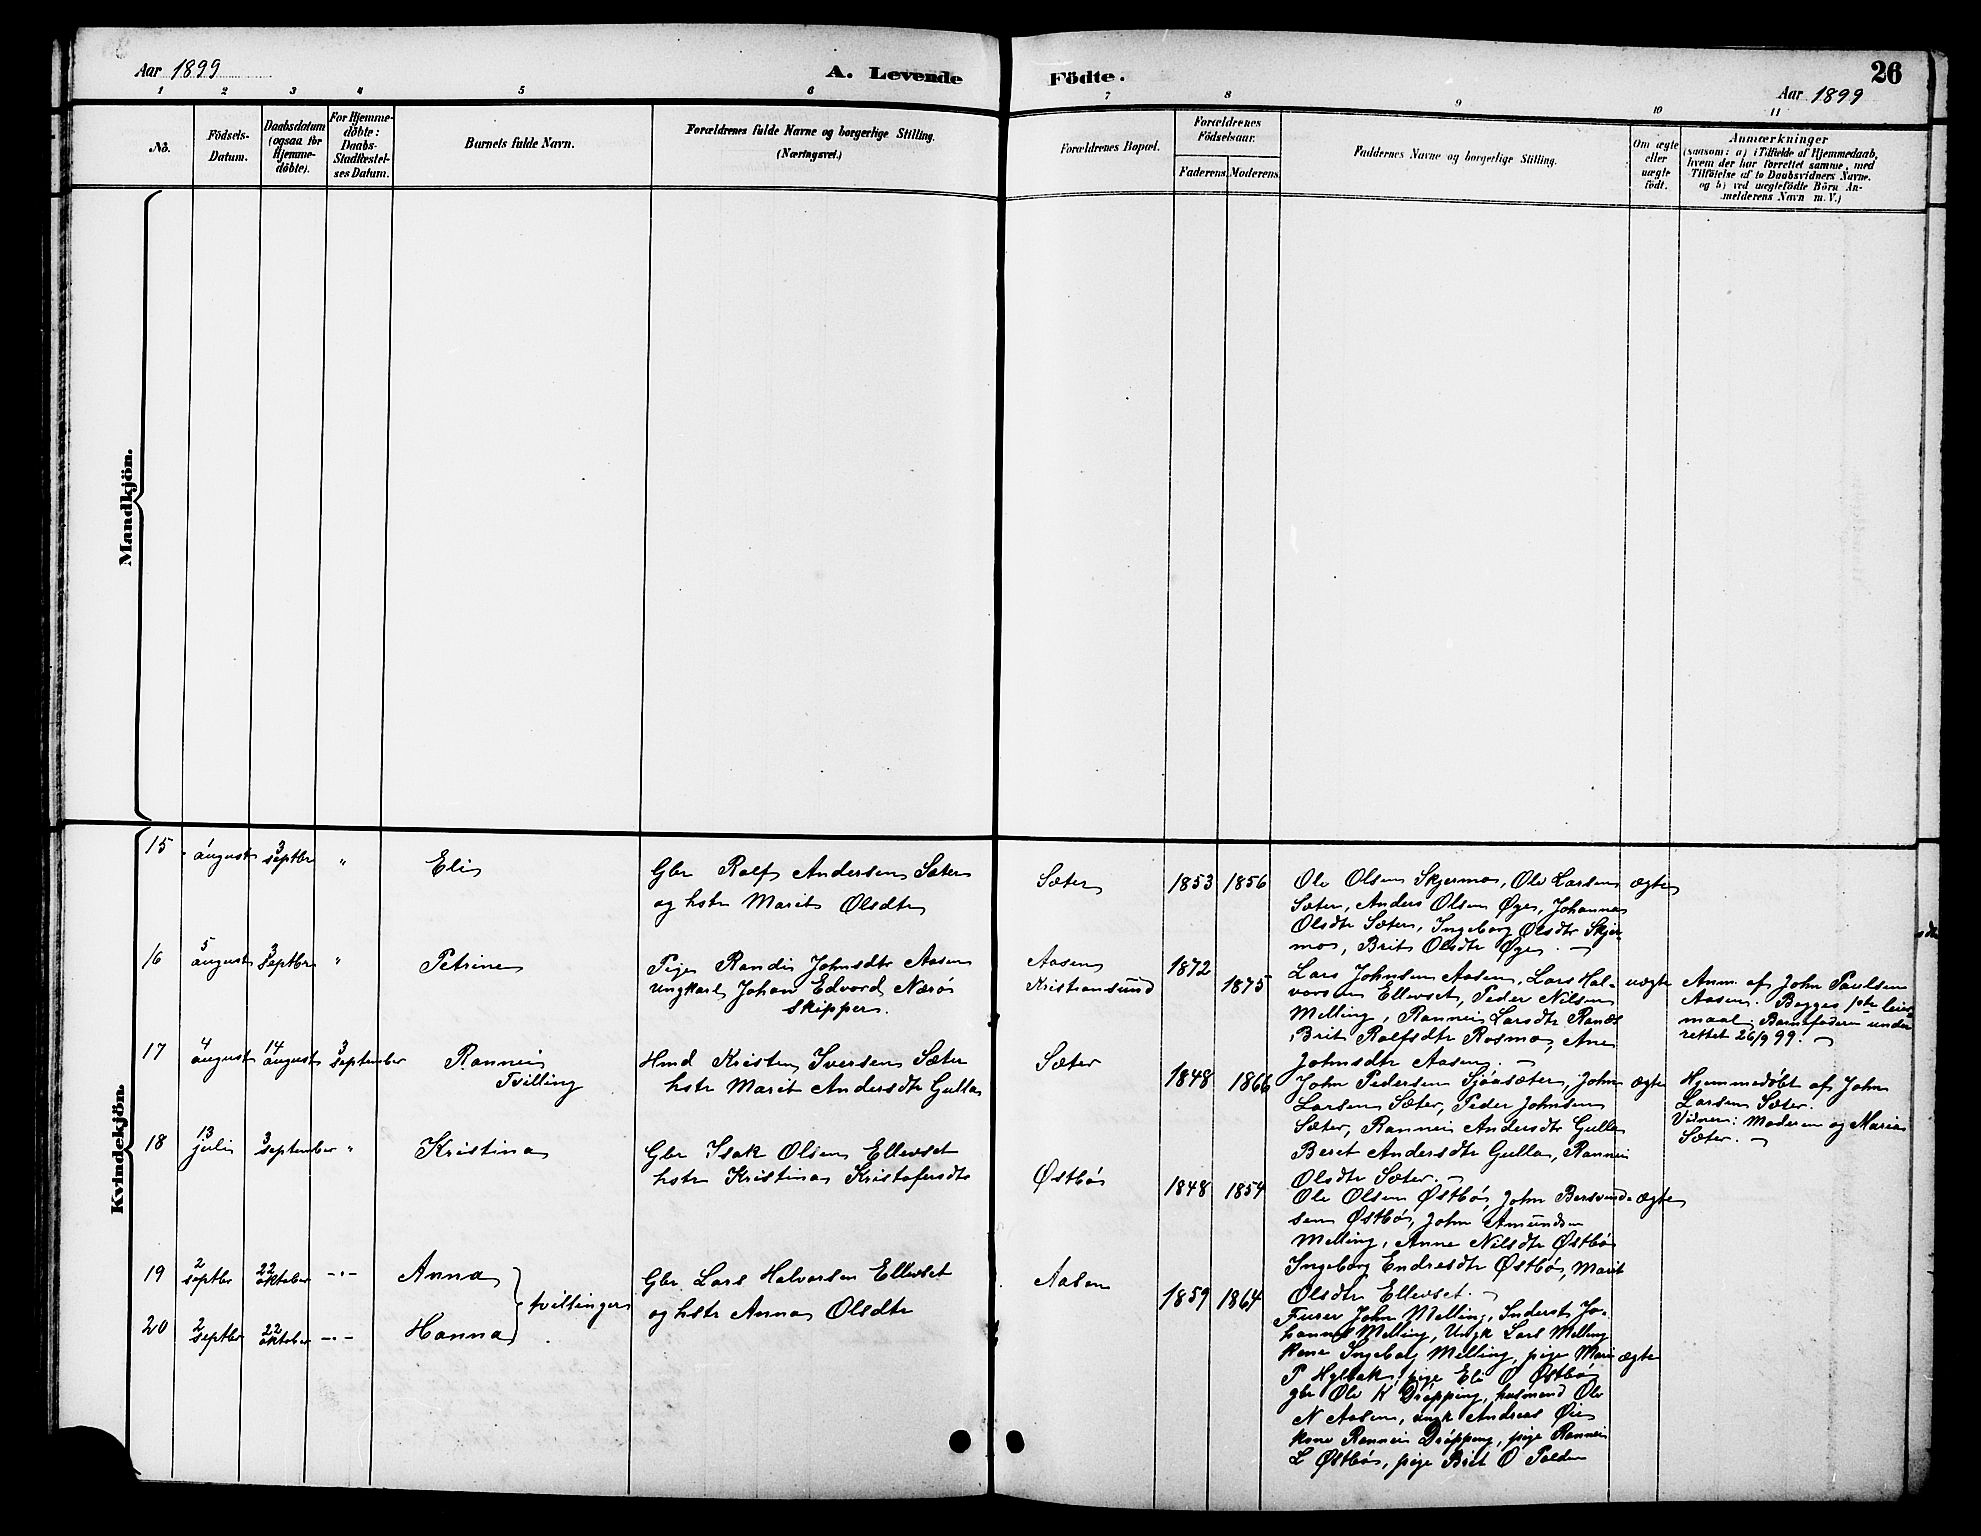 26
Aar 1899
A. Levende
Födte.
Aar 1899
1 2 3 4 5 6 7 8 9 10 11
No.
Födsels-
Datum.
Daabsdatum
(ogsaa for
Hjemme-
døbte).
For Hjemme-
døbte:
Daabs-
Stadfæstel-
ses Datum.
Barnets fulde Navn.
Forældrenes fulde Navne og borgerlige Stilling.
(Næringsvei.)
Forældrenes Bopæl.
Forældrenes
Födselsaar.
Faderens Moderens
Faddernes Navne og borgerlige Stilling.
Om ægte
eller
uægte
födt.
Anmærkninger
(saasom: a) i Tilfælde af Hjemmedaab,
hvem der har forrettet samme, med
Tilföielse af to Daabsvidners Navne.
og b) ved uægtefödte Börn An-
melderens Navn m. V.)
Mandkjön.
Kvindekjön.
15
1
august
3
septbr
"
Eli
Gbr Rolf Andersen Sæter
og hstr Marit Olsdtr
Sæter
1853 1856
Ole Olsen Skjermo, Ole Larsen
Sæter, Anders Olsen Øye, Johanna
Olsdtr Sæter, Ingeborg Olsdtr Skjer-
mo, Brit Olsdtr Øye. —
ægte
16
5
august
3
septbr
"
Petrine
Pige Randi Johnsdtr Aasen
ungkarl Johan Edvard Nærø
Skipper.
Aasen
Kristiansund
1872
1875
Lars Johnsen Aasen, Lars Hal-
vorsen Ellevset, Peder Nilsen
Melling, Rannei Larsdtr Ranæs
Brit Rolfsdtr Rosmo, Ane
Johnsdtr Aasen. —
uægte
Anm. af John Paulsen
Aasen. Begges 1ste leier-
maal. Barnefaderen under-
rettet 26/9 99. —
17
4
august
14
august
3
september
Rannei
Tvilling
Hmd Kristen Iversen Sæter
hstr Marit Andersdtr Gulla
Sæter
1848 1866
John Pedersen Sjöasæter, John
Larsen Sæter, Peder Johnsen
Sæter, Rannei Andersdtr Gulla
Berit Andersdtr Gulla, Rannei
Olsdtr Sæter. —
ægte
Hjemmedøbt af John
Larsen Sæter.
Vidner: Moderen og Maria
Sæter. —
18
13
juli
3
september
"
Kristina
Gbr Isak Olsen Ellevset
hstr Kristina Kristofersdtr
Østbø
1848 1854
Ole Olsen Østbø, John Bersvend-
sen Østbø, John Amundsen
Melling, Anne Nilsdtr Østbø
Ingeborg Endresdtr Østbø, Marit
Olsdtr Ellevset. —
ægte
19
2
septbr
22
oktober
-"-
Anna
20
2
septbr
22
oktober
-"-
Hanna
tvillinger
Gbr Lars Halvorsen Ellevset
og hstr Anna Olsdtr
Aasen
1859 1864
Furer John Melling, Inderst Jo-
hannes Melling, Ungk Lars Melling
kone Ingeborg Melling, pige Mari
P Hylbak, pige Eli O Østbø
gbr Ole K Drøpping, husmand Ole
N Aasen, ungk Andreas Øie
kone Rannei Drøpping, pige Rannei
L Østbø, pige Brit O Polden
ægte